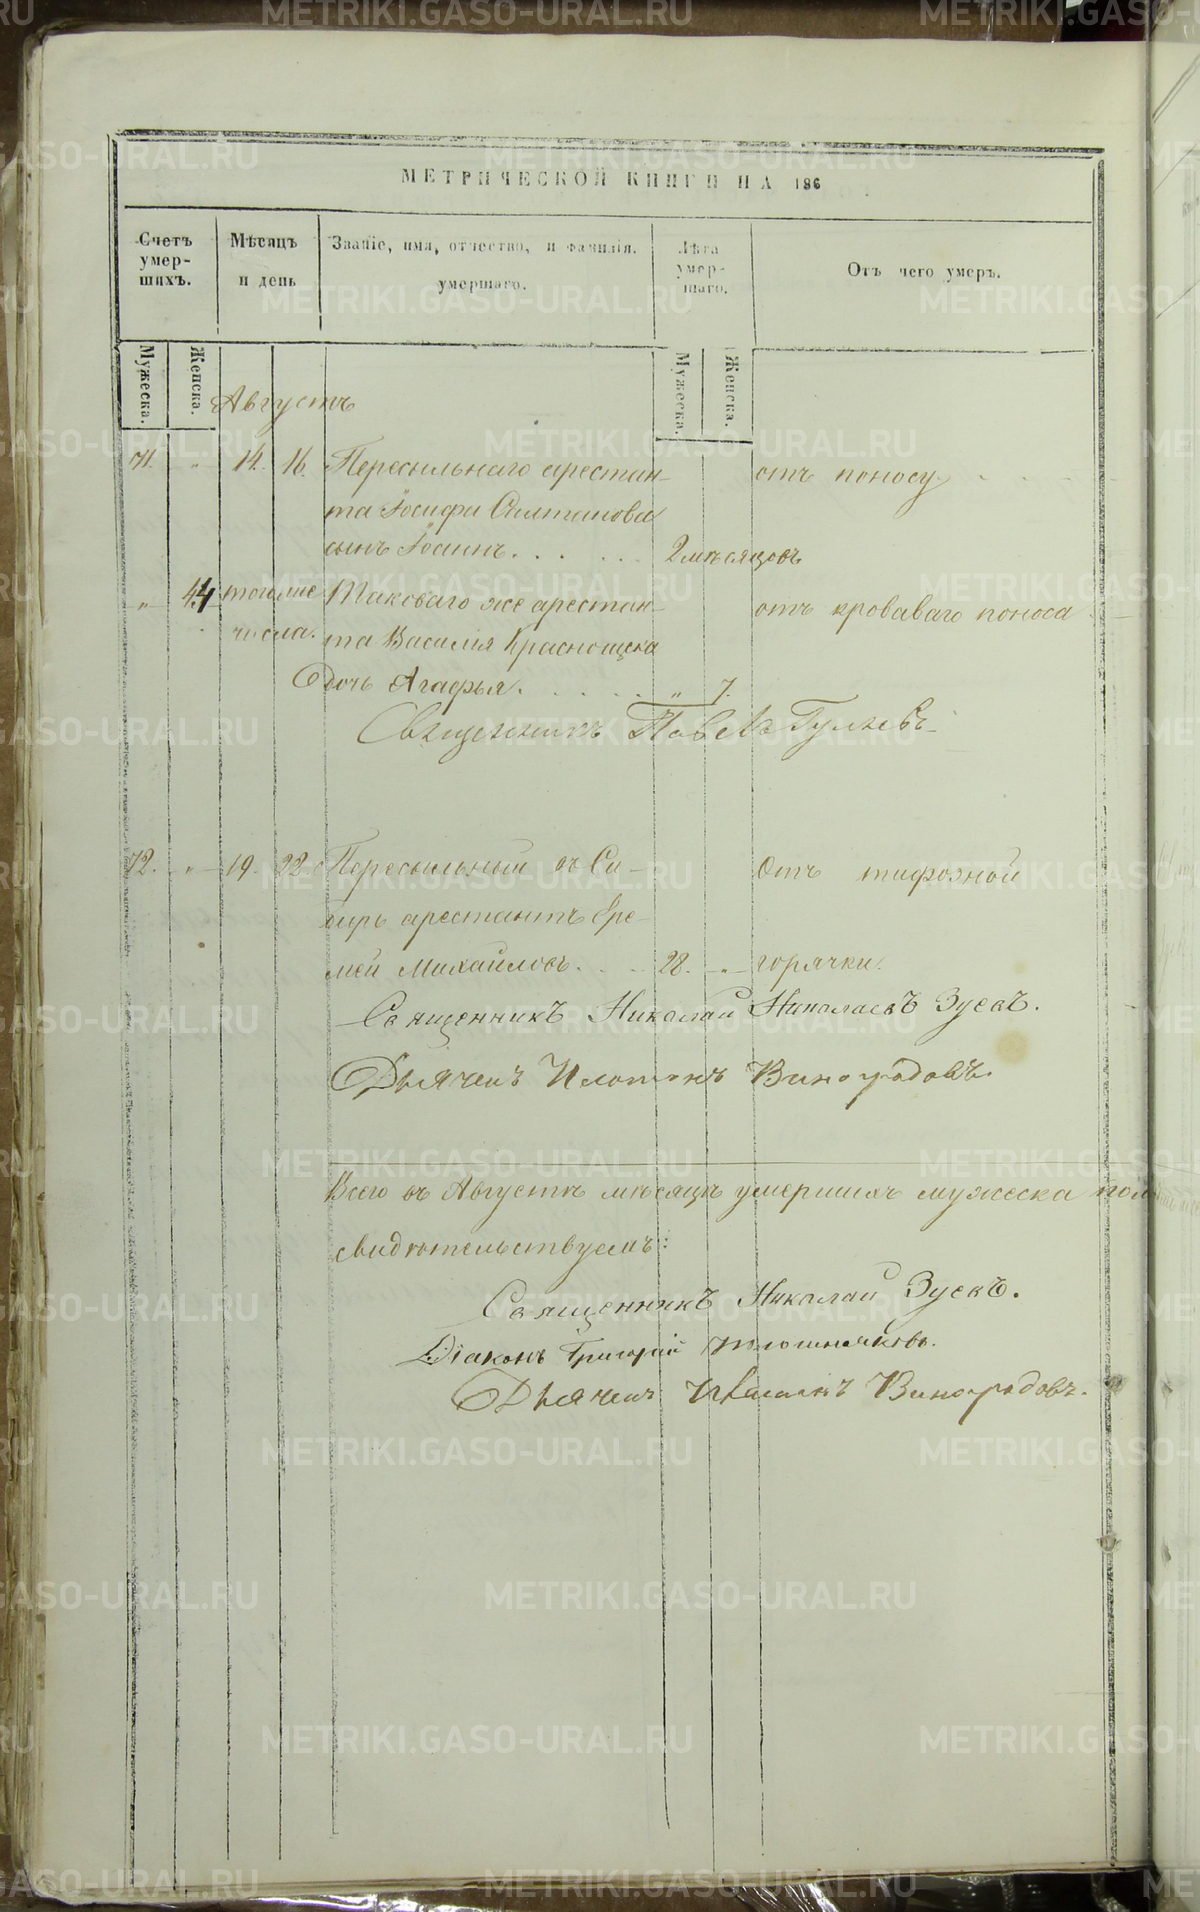 МЕТРИЧЕСКОЙ КНИГИ НА 186
Счетъ умер-шихъ.
Мѣсяцъ и день
Званіе, имя, отчество, и фамилія. умершаго.
Лѣта умер-шаго.
Отъ чего умеръ.
Мужеска. Женска. Мужеска. Женска.
Августъ
71. " 14. 16. Пересыльнаго арестан- отъ поносу.
та Іосифа Салтанова
сынъ Іоаннъ. 2 мѣсяцовъ
" 44 тогоже Таковаго же арестан- отъ кроваваго поноса
числа. та Василія Краснощека
дочь Агафья. " 7.
Священникъ Павелъ Гуляевъ
72. " 19. 22. Пересыльный въ Си- Отъ тифозной
бирь арестантъ Ере-
мей Михайловъ. 28. " горячки.
Священникъ Николай Николаевъ Зуевъ.
Дьячекъ Платонъ Виноградовъ.
Всего въ Августѣ мѣсяцѣ умершихъ мужеска пол
свидѣтельствуемъ:
Священникъ Николай Зуевъ.
Діаконъ Григорій
Дьячекъ Платонъ Виноградовъ.
METRIKI.GASO-URAL.RU